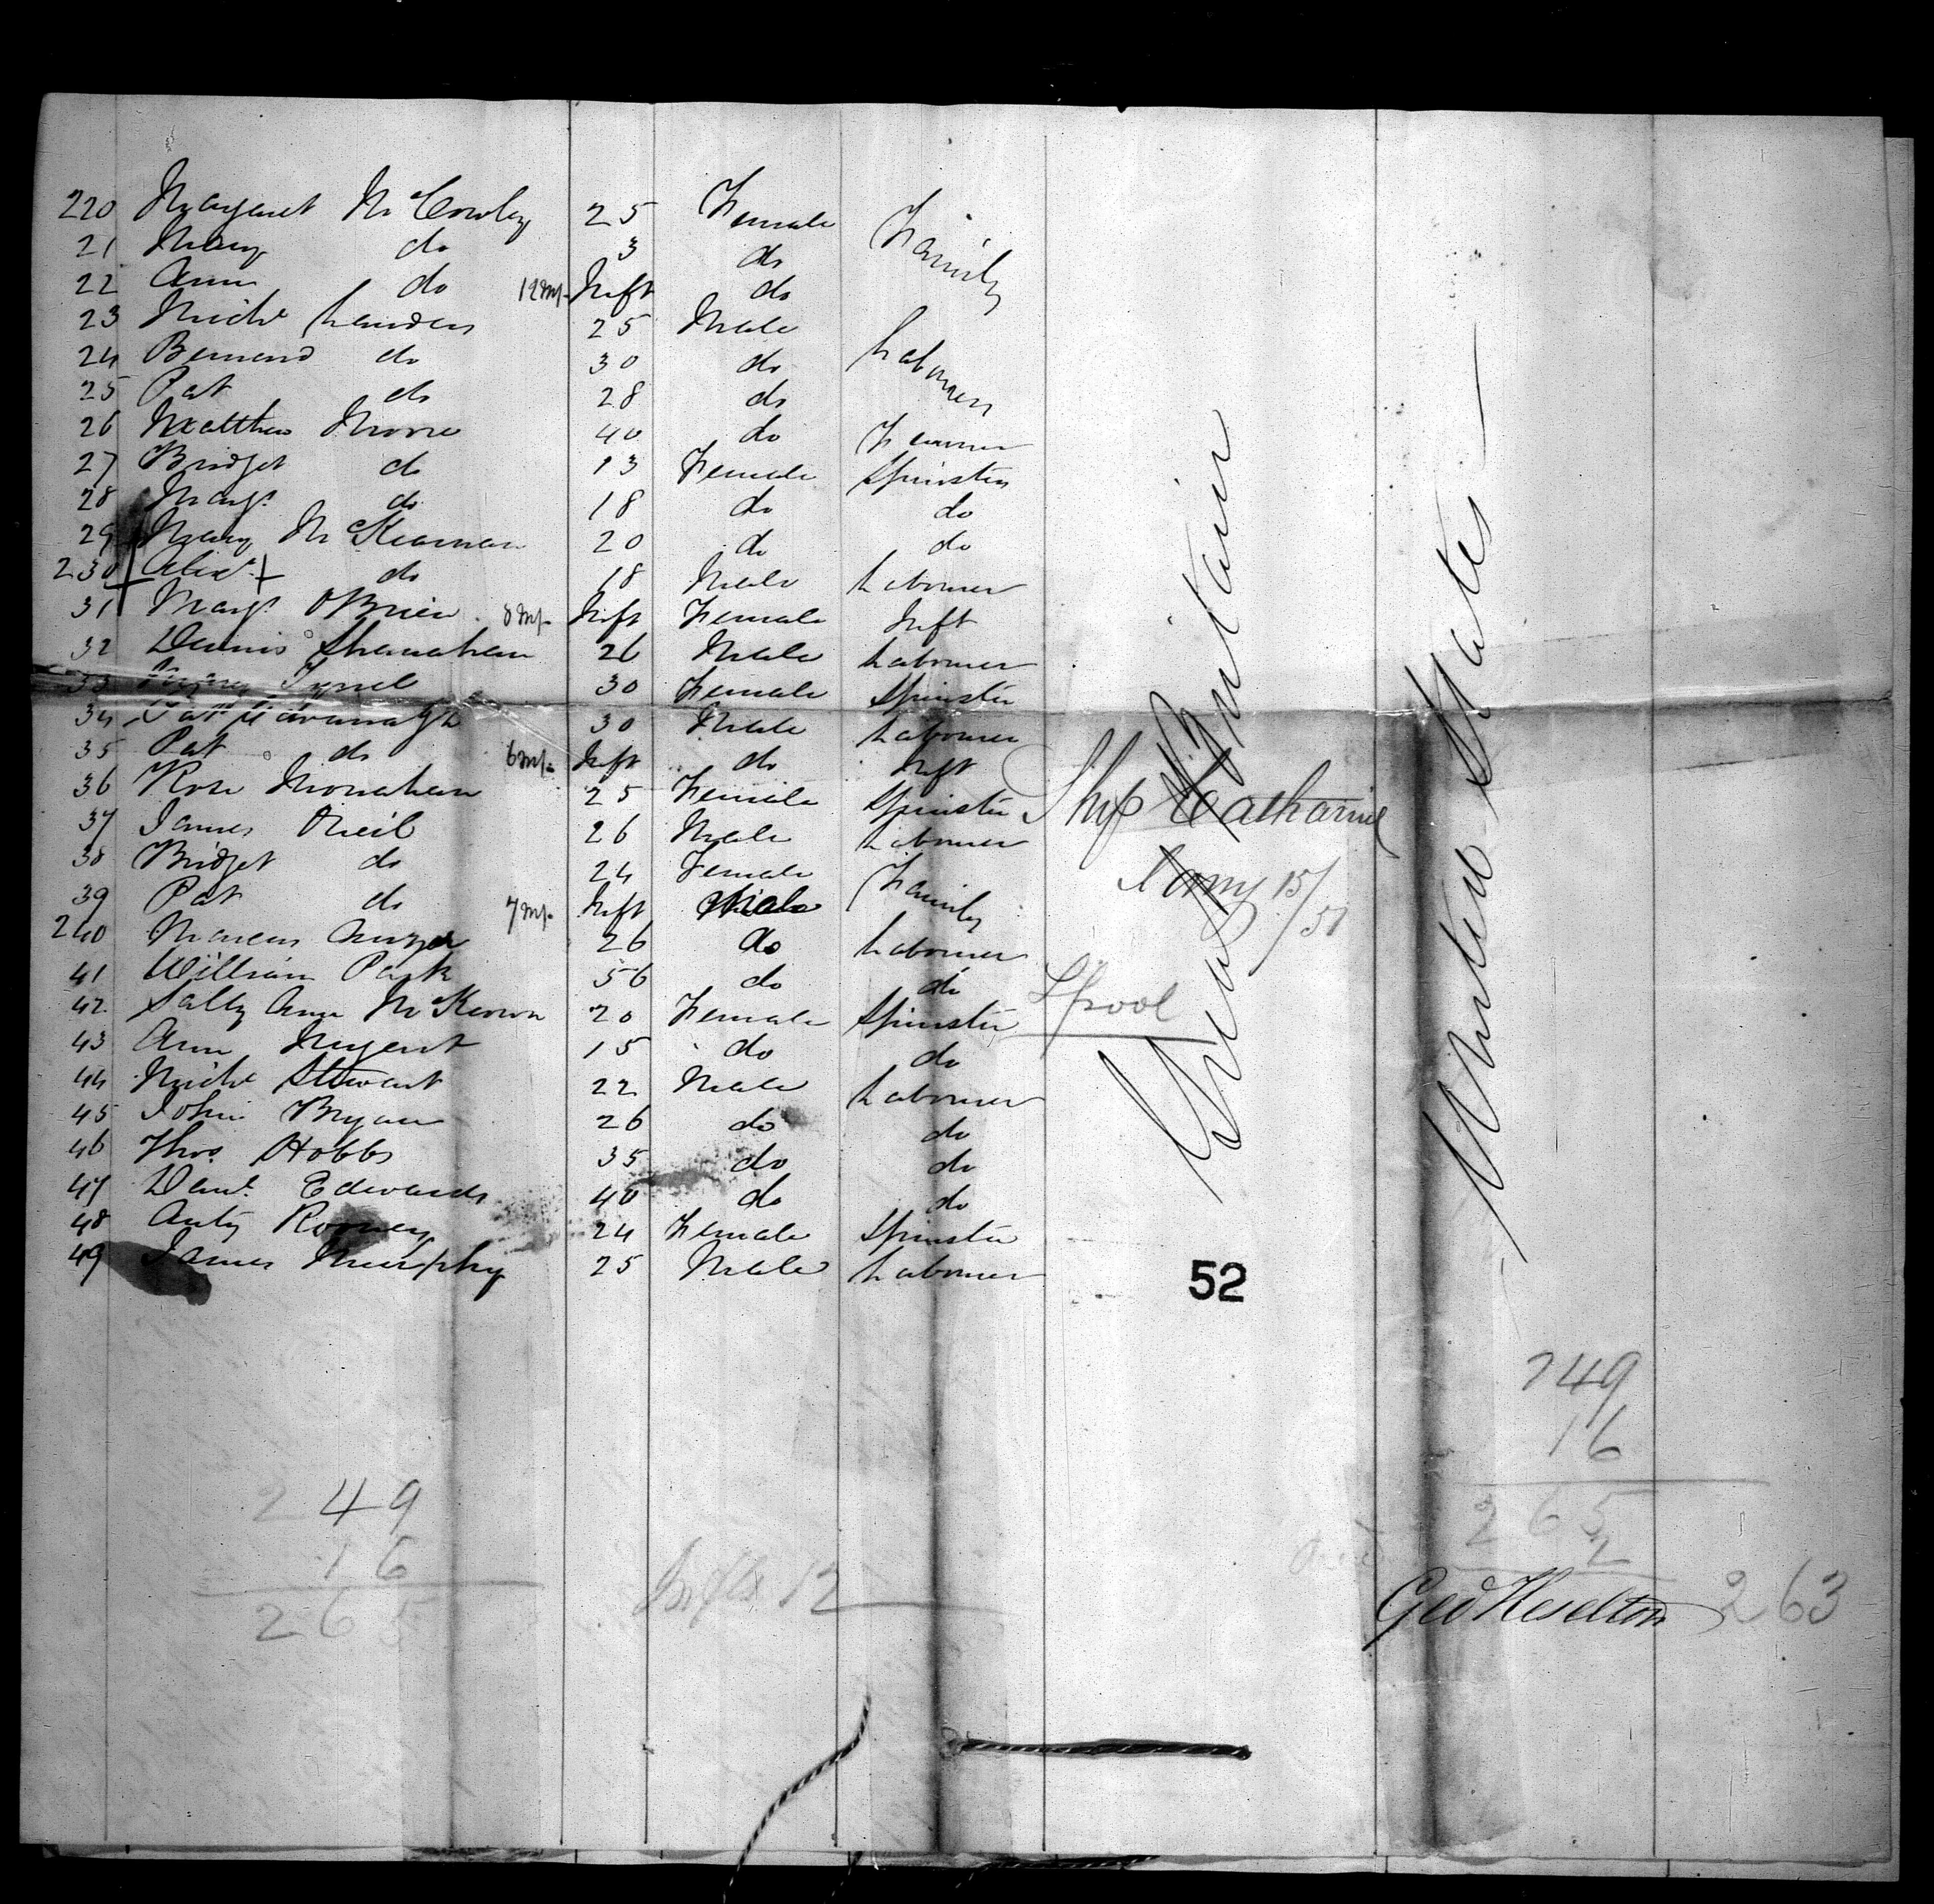 220 Margaret McCowley 25 Female Family
21 Mary do 3 do
22 Ann do 12 Ms. Inft do
23 Michl Landers 25 Male Labourers
24 Bernard do 30 do
25 Pat do 28 do
26 Matthew Moore 40 do Farmer
27 Bridget do 13 Female Spinster
28 Margt do 18 do do
29 Mary McKiernan 20 do do
230 Alexr do 18 Male Labourer
31 Margt OBrien 8 Ms. Inft Female Inft
32 Dennis Shanahan 26 Male Labourer
33 Tyrrel 30 Female Spinster
34 Pat Kavanagh 30 Male Labourer
35 Pat do 6 Ms. Inft do Inft
36 Rose Monahan 25 Female Spinster
37 James Oneil 26 Male Labourer
38 Bridget do 24 Female Family
39 Pat do 7 Ms. Inft Male
240 26 do Labourer
41 William Park 56 do do
42 Sally Ann McKeown 20 Female Spinster
43 Ann Nugent 15 do do
44 Michl Stewart 22 Male Labourer
45 John Bryan 26 do do
46 Thos Hobbs 35 do do
47 Danl. Edwards 40 do do
48 Anty Rooney 24 Female Spinster
49 James Murphy 25 Male Labourer
Great Britain
United States
Ship Catharine
15/51
Lpool
52
249
16
265
2
263
Geo Heselton
249
16
265
Infts 12